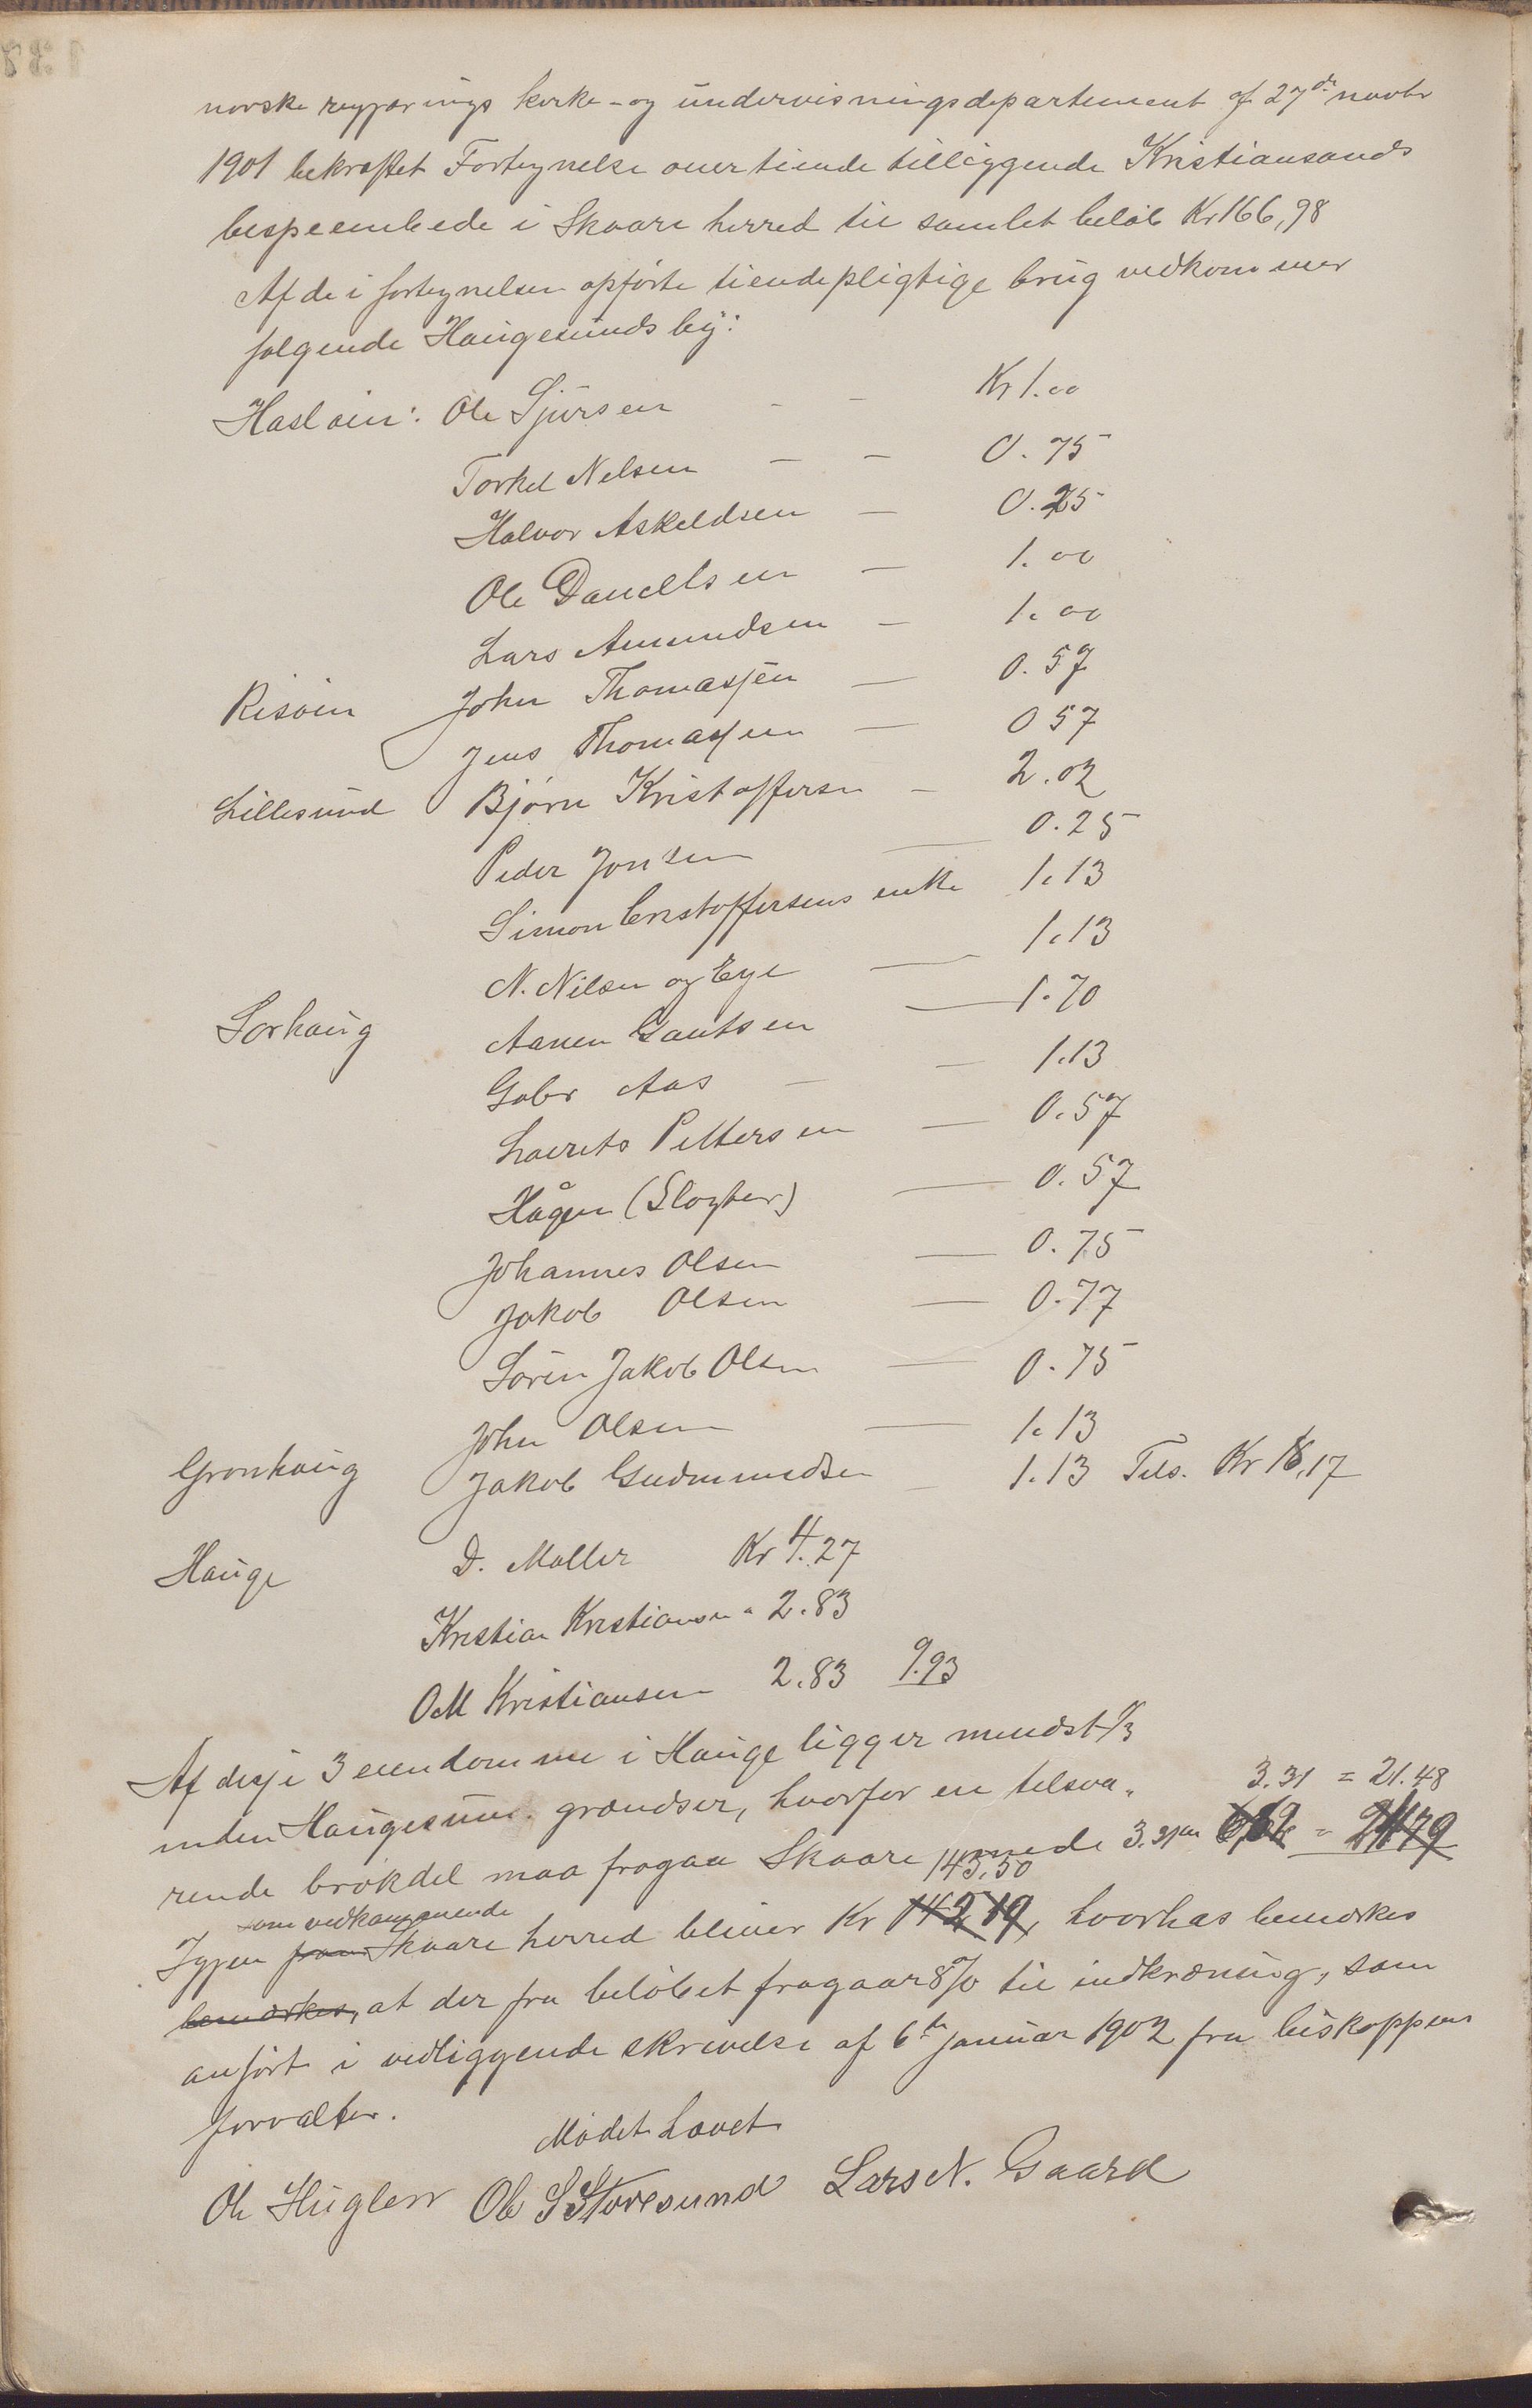 norske regjærings kirke- og undervisningsdepartement af 27de novbr
1901 bekræftet Fortegnelse over tiende tilliggende Kristiansands
bispeembede i Skaare herred til samlet beløb Kr 166,98
Af de i fortegnelsen opførte tiendepligtige brug vedkommer
følgende Haugesunds by:
Hasløen: Ole Sjursen - - Kr 1.00
Torkel Nelsen - - 0.75
Halvor Askeldsen - 0.25
Ole Danielsen - 1.00
Lars Amundsen - 1.00
Risøen John Thomassen - 0.57
Jens Thomassen - 0 57
Lillesund Bjørn Kristoffersn - 2.02
Peder Jonsen - 0.25
Simon Cristoffersens enke 1.13
N. Nilsen og Eye - 1.13
Sørhaug Aanen Gautsen - 1.70
Gabr Aas - - 1.13
Laurits Pettersen - 0.57
Hågen (Slagter) - 0.57
Johannes Olsen - 0.75
Jakob Olsen - 0.77
Søren Jakob Olsen - 0.75
John Olsen - 1.13
Grønhaug Jakob Gudmundsen - 1.13 Tils. Kr 18,17
Hauge D. Møller Kr 4.27
Kristian Kristiansen " 2.83
O M Kristiansen 2.83 9.93
Af disse 3 eiendomme i Hauge ligger mindst 1/3
inden Haugesun. grændser, hvorfor en tilsva-
3.31 = 21.48
rende brøkdel maa fragaa Skaare med 3.31
143,50
som vedkommende
Igjen Skaare herred bliver Kr , hvorhos bemærkes
bemærkes, at der fra beløbet fragaar 8% til indkrævning, som
anført i vedliggende skrivelse af 6te januar 1902 fra biskoppens
forvalter.
Mødet hævet
Ole Huglen Ole S Storesund Lars N. Gaard